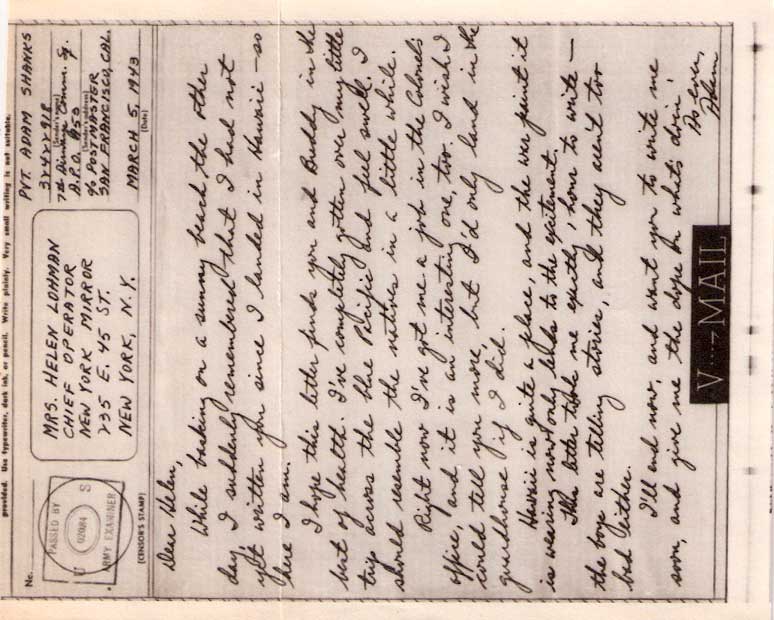 provided. Use typewriter, dark ink, or pencil. Write plainly. Very small writing is not suitable.
No.
PASSED BY
U S
02084
ARMY EXAMINER
(CENSOR'S STAMP)
MRS. HELEN LOHMAN
CHIEF OPERATOR
NEW YORK MIRROR
235 E. 45 ST.
NEW YORK, N.Y.
PVT. ADAM SHANKS
(Sender's name)
7th Comm. Sq.
(Sender's address)
A.P.O. #953
% POSTMASTER
SAN FRANCISCO, CAL.
MARCH 5, 1943
(Date)
Dear Helen,
While basking on a sunny beach the other
day, I suddenly remembered that I had not
yet written you since I landed in Hawaii – so
here I am.
I hope this letter finds you and Buddy in the
best of health. I've completely gotten over my little
trip across the blue Pacific and feel swell. I
should resemble the natives in a little while.
Right now I've got me a job in the Colonel's
office, and it is an interesting one, too. I wish I
could tell you more, but I'd only land in the
guardhouse if I did.
Hawaii is quite a place, and the war paint it
is wearing now only lends to the excitement.
This letter took me exactly 1 hour to write –
the boys are telling stories, and they aren't too
bad either.
I'll end now, and want you to write me
soon, and give me the dope on what's doin'.
As ever,
Adam
V···–MAIL